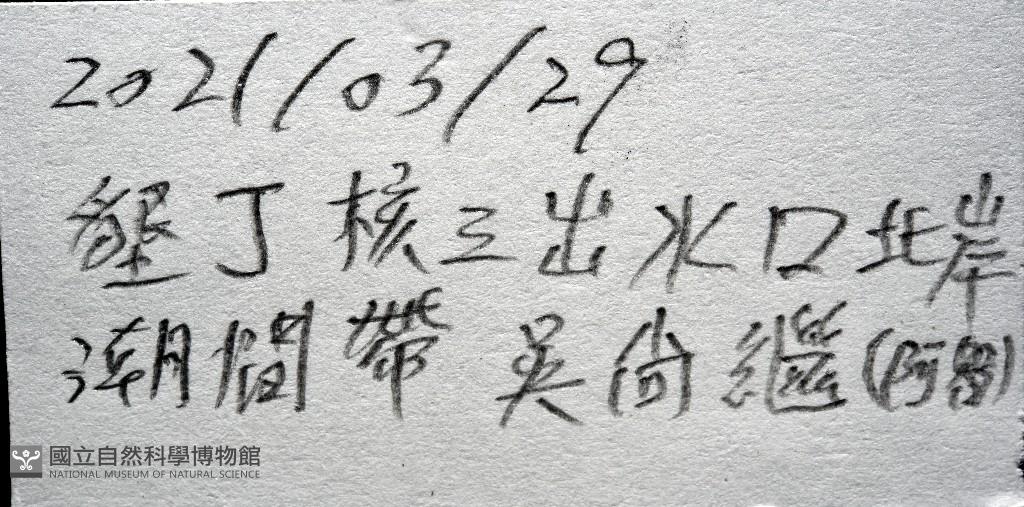 2021/03/29
墾丁核三出水口北岸
潮間帶 吳尚繼(阿留)
國立自然科學博物館
NATIONAL MUSEUM OF NATURAL SCIENCE